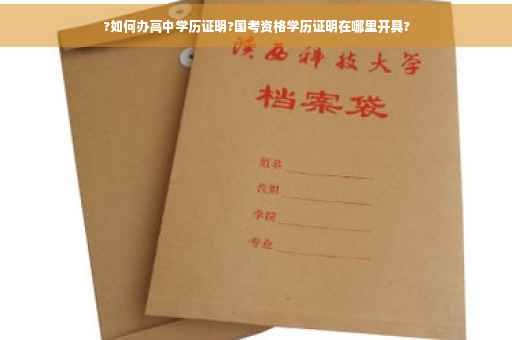 ?如何办高中学历证明?国考资格学历证明在哪里开具?
陕西科技大学
档案袋
姓名
学院
专业